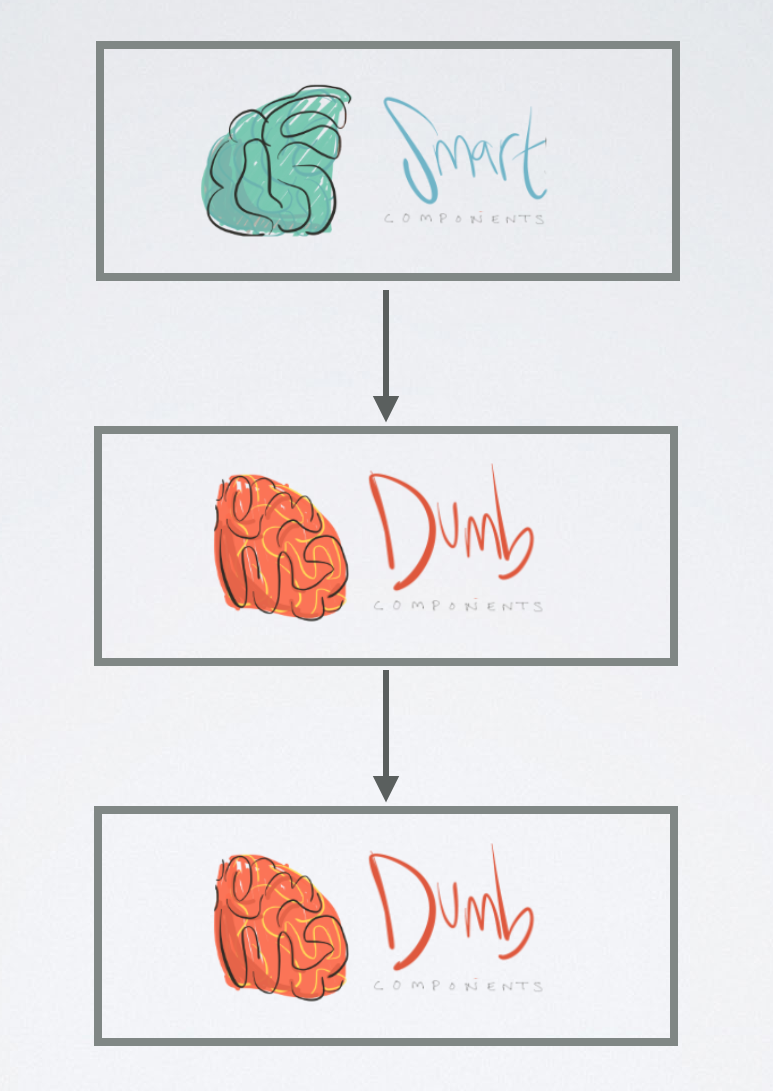 Smart
COMPONENTS
Dumb
COMPONENTS
Dumb
COMPONENTS